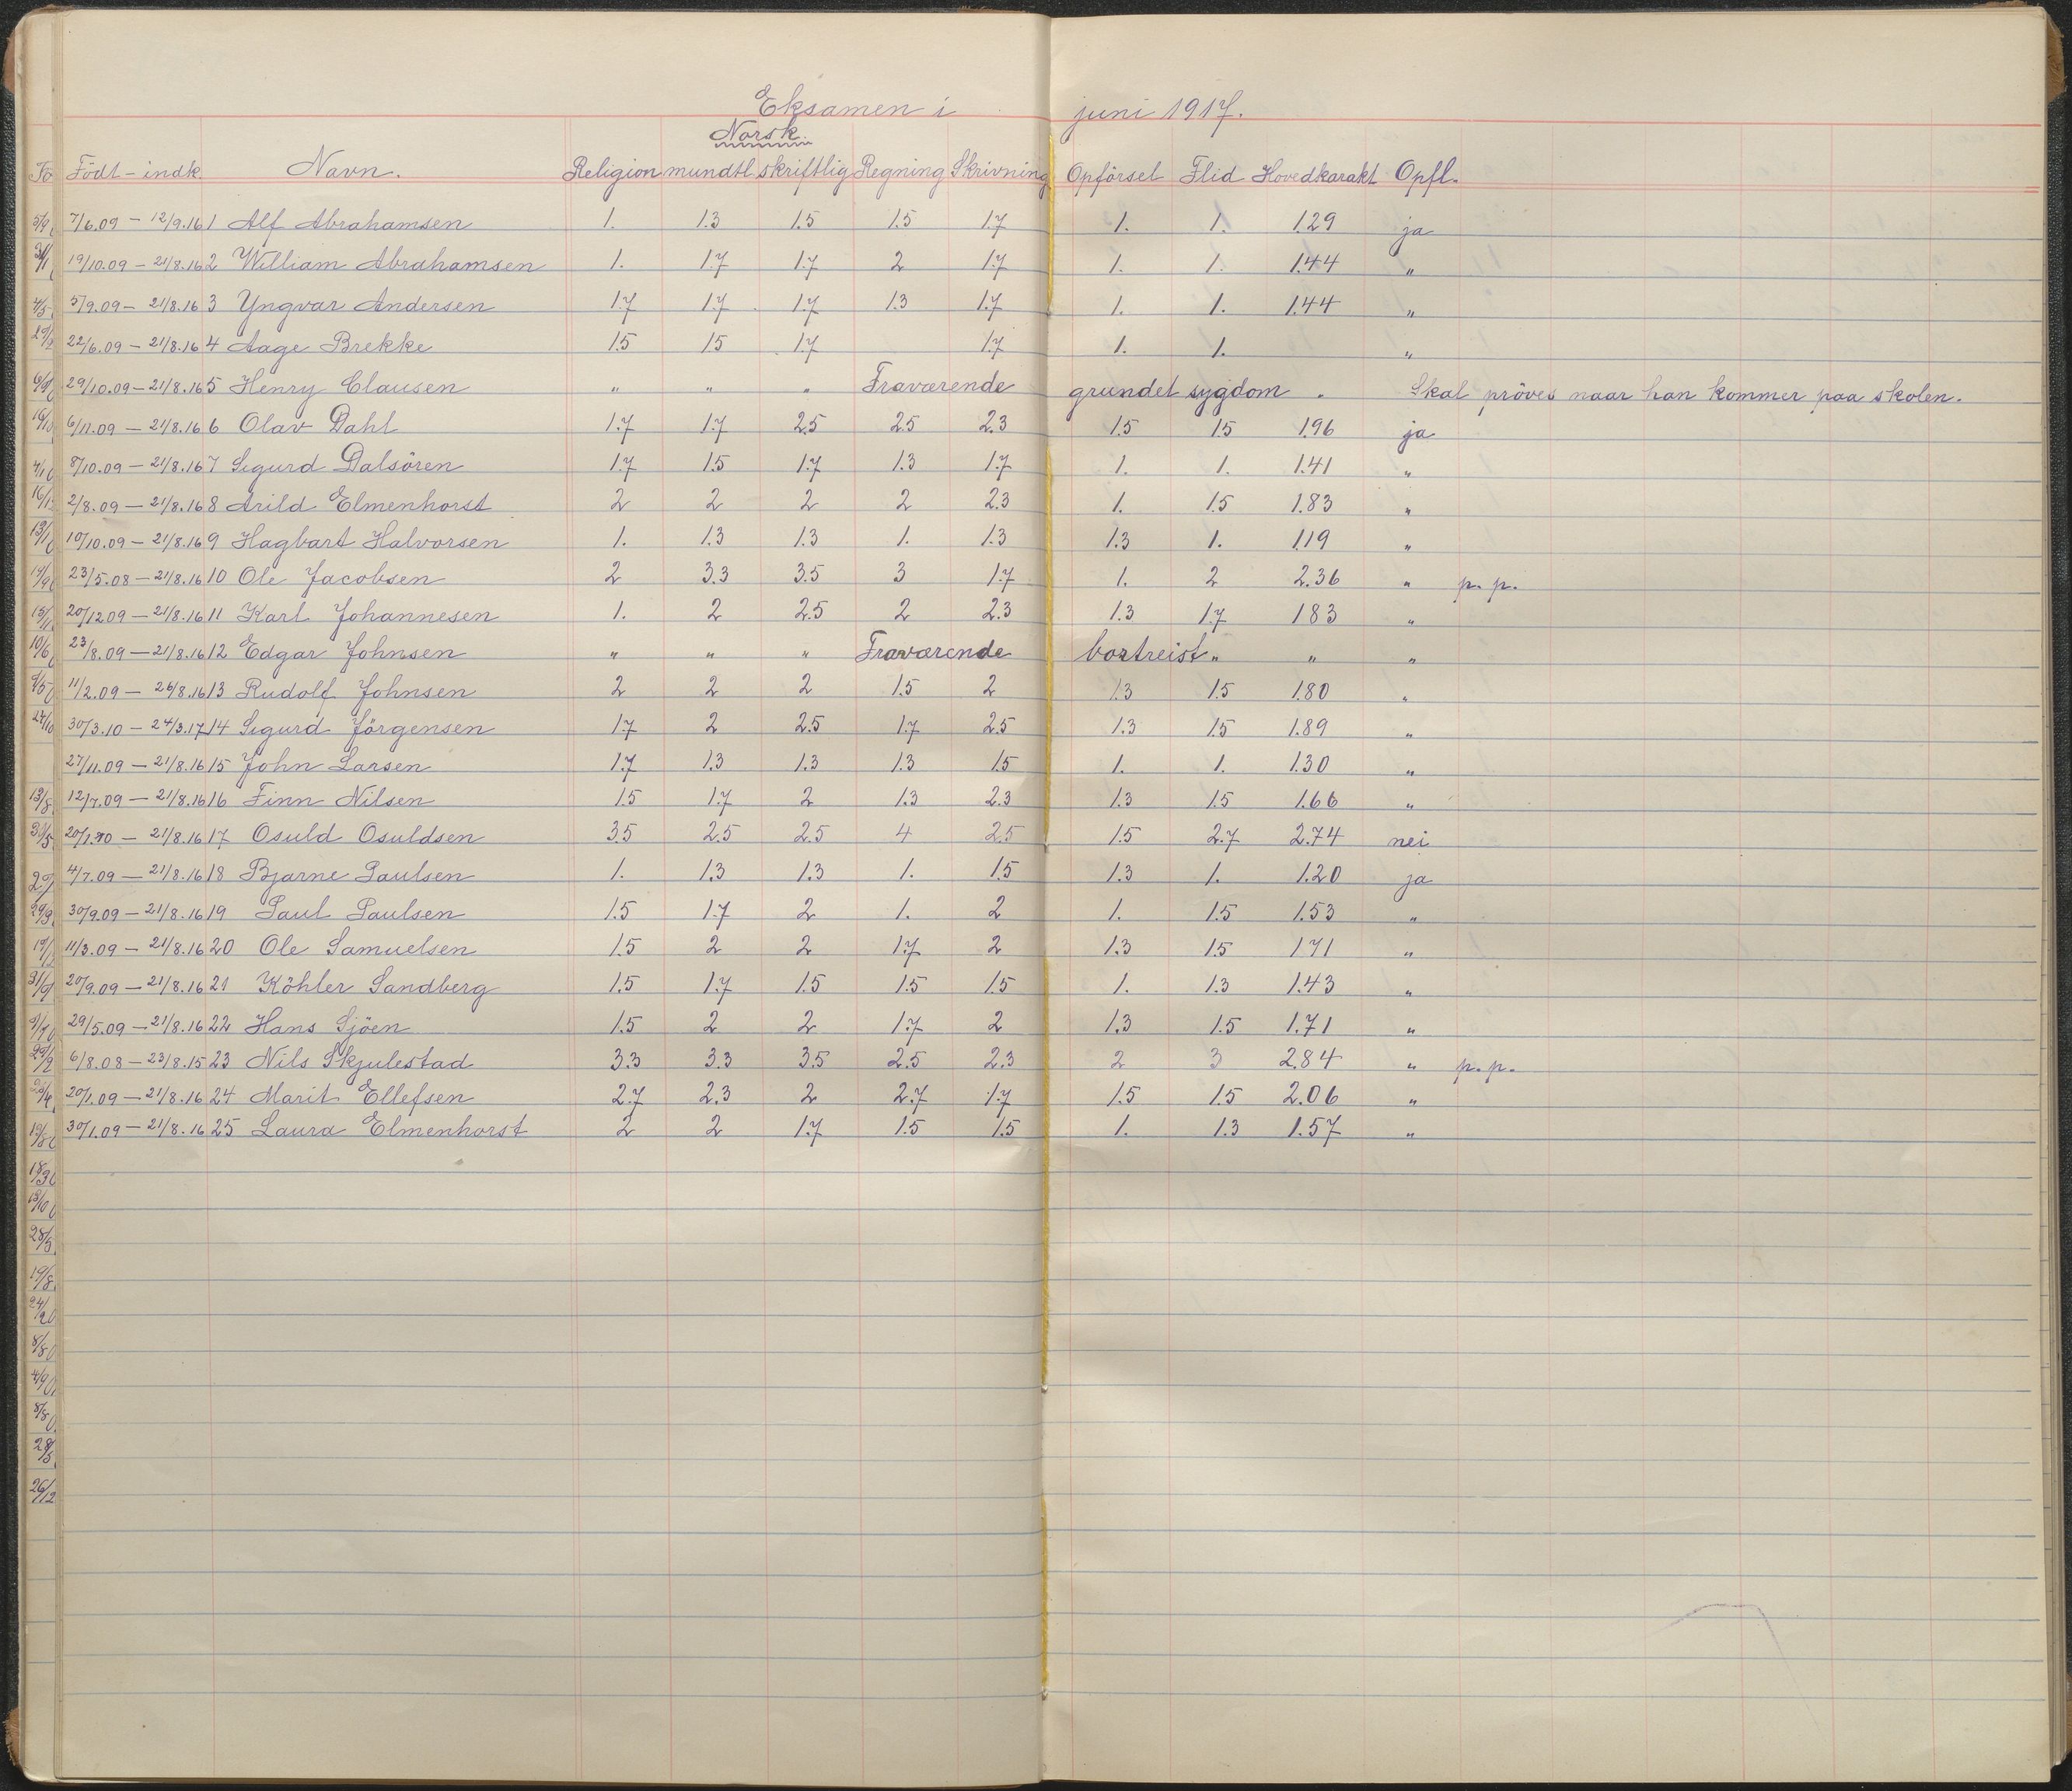 Eksamen i juni 1917.
Norsk.
Födt - indk. Navn. Religion mundtl. skriftlig Regning Skrivning Opförsel Flid Hovedkarakt Opfl.
7/6.09 - 12/9.16 1 Alf Abrahamsen 1. 1.3 1.5 1.5 1.7 1. 1. 1.29 ja
19/10.09 - 21/8.16 2 William Abrahamsen 1. 1.7 1.7 2 1.7 1. 1. 1.44 "
5/9.09 - 21/8.16 3 Yngvar Andersen 1.7 1.7 1.7 1.3 1.7 1. 1. 1.44 "
22/6.09 - 21/8.16 4 Aage Brekke 1.5 1.5 1.7 1.7 1. 1. "
29/10.09 - 21/8.16 5 Henry Clausen " " " Fraværende grundet sygdom " Skal pröves naar han kommer paa skolen.
6/11.09 - 21/8.16 6 Olav Dahl 1.7 1.7 2.5 2.5 2.3 1.5 1.5 1.96 ja
8/10.09 - 21/8.16 7 Sigurd Dalsören 1.7 1.5 1.7 1.3 1.7 1. 1. 1.41 "
2/8.09 - 21/8.16 8 Arild Elmenhorst 2 2 2 2 2.3 1. 1.5 1.83 "
10/10.09 - 21/8.16 9 Hagbart Halvorsen 1. 1.3 1.3 1. 1.3 1.3 1. 1.19 "
23/5.08 - 21/8.16 10 Ole Jacobsen 2 3.3 3.5 3 1.7 1. 2 2.36 " p.p.
20/12.09 - 21/8.16 11 Karl Johannesen 1. 2 2.5 2 2.3 1.3 1.7 1.83 "
23/8.09 - 21/8.16 12 Edgar Johnsen " " " Fraværende bortreist " " "
11/2.09 - 26/8.16 13 Rudolf Johnsen 2 2 2 1.5 2 1.3 1.5 1.80 "
30/3.10 - 24/3.17 14 Sigurd Jörgensen 1.7 2 2.5 1.7 2.5 1.3 1.5 1.89 "
27/11.09 - 21/8.16 15 John Larsen 1.7 1.3 1.3 1.3 1.5 1. 1. 1.30 "
12/7.09 - 21/8.16 16 Finn Nilsen 1.5 1.7 2 1.3 2.3 1.3 1.5 1.66 "
21/8.16 17 Osuld Osuldsen 3.5 2.5 2.5 4 2.5 1.5 2.7 2.74 nei
4/7.09 - 21/8.16 18 Bjarne Paulsen 1. 1.3 1.3 1. 1.5 1.3 1. 1.20 ja
30/9.09 - 21/8.16 19 Paul Paulsen 1.5 1.7 2 1. 2 1. 1.5 1.53 "
11/3.09 - 21/8.16 20 Ole Samuelsen 1.5 2 2 1.7 2 1.3 1.5 1.71 "
20/9.09 - 21/8.16 21 Köhler Sandberg 1.5 1.7 1.5 1.5 1.5 1. 1.3 1.43 "
29/5.09 - 21/8.16 22 Hans Sjöen 1.5 2 2 1.7 2 1.3 1.5 1.71 "
6/8.08 - 23/8.15 23 Nils Skjulestad 3.3 3.3 3.5 2.5 2.3 2 3 2.84 " p.p.
20/1.09 - 21/8.16 24 Marit Ellefsen 2.7 2.3 2 2.7 1.7 1.5 1.5 2.06 "
30/1.09 - 21/8.16 25 Laura Elmenhorst 2 2 1.7 1.5 1.5 1. 1.3 1.57 "